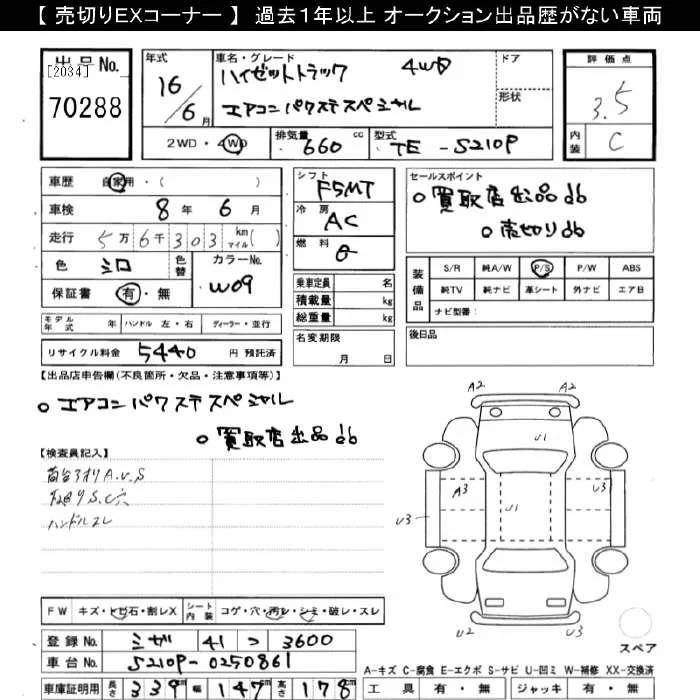 【 売切りEXコーナー 】 過去1年以上 オークション出品歴がない車両
出品No.
[2034]
70288
年式
16
6月
車名・グレード
ハイゼットトラック 4WD
エアコン パワステ スペシャル
ドア
形状
評価点
3.5
内装
C
2WD・4WD
排気量
660 cc
型式
TE-S210P
車歴 自家用・( )
車検 8年 6月
走行 5万6千303 km マイル( )
色 シロ 色替
カラーNo.
W09
保証書 有・無
シフト
F5MT
冷房
AC
燃料
G
乗車定員 名
積載量 kg
総重量 kg
名変期限
月 日
セールスポイント
○ 買取店出品
○ 売切り
装備品
S/R 純A/W P/S P/W ABS
純TV 純ナビ 革シート 外ナビ エアB
ナビ型番:
後日品
モデル年式 年 ハンドル 左・右 ディーラー・並行
リサイクル料金 5440 円 預託済
【出品店申告欄(不良箇所・欠品・注意事項等)】
○ エアコン パワステ スペシャル
○ 買取店出品
【検査員記入】
荷台 アオリ A.U.S
S.C穴
ハンドルスレ
A2 A2
U1
A3 U3
U1
U3
U2 U3
スペア
FW キズ・トビ石・割レX シート内装 コゲ・穴・汚レ・シミ・破レ・スレ
登録No. ミザ 41 つ 3600
車台No. S210P-0250861
車庫証明用 長さ 339cm 幅 147cm 高さ 178cm
A-キズ C-腐食 E-エクボ S-サビ U-凹ミ W-補修 XX-交換済
工具 有・無 ジャッキ 有・無